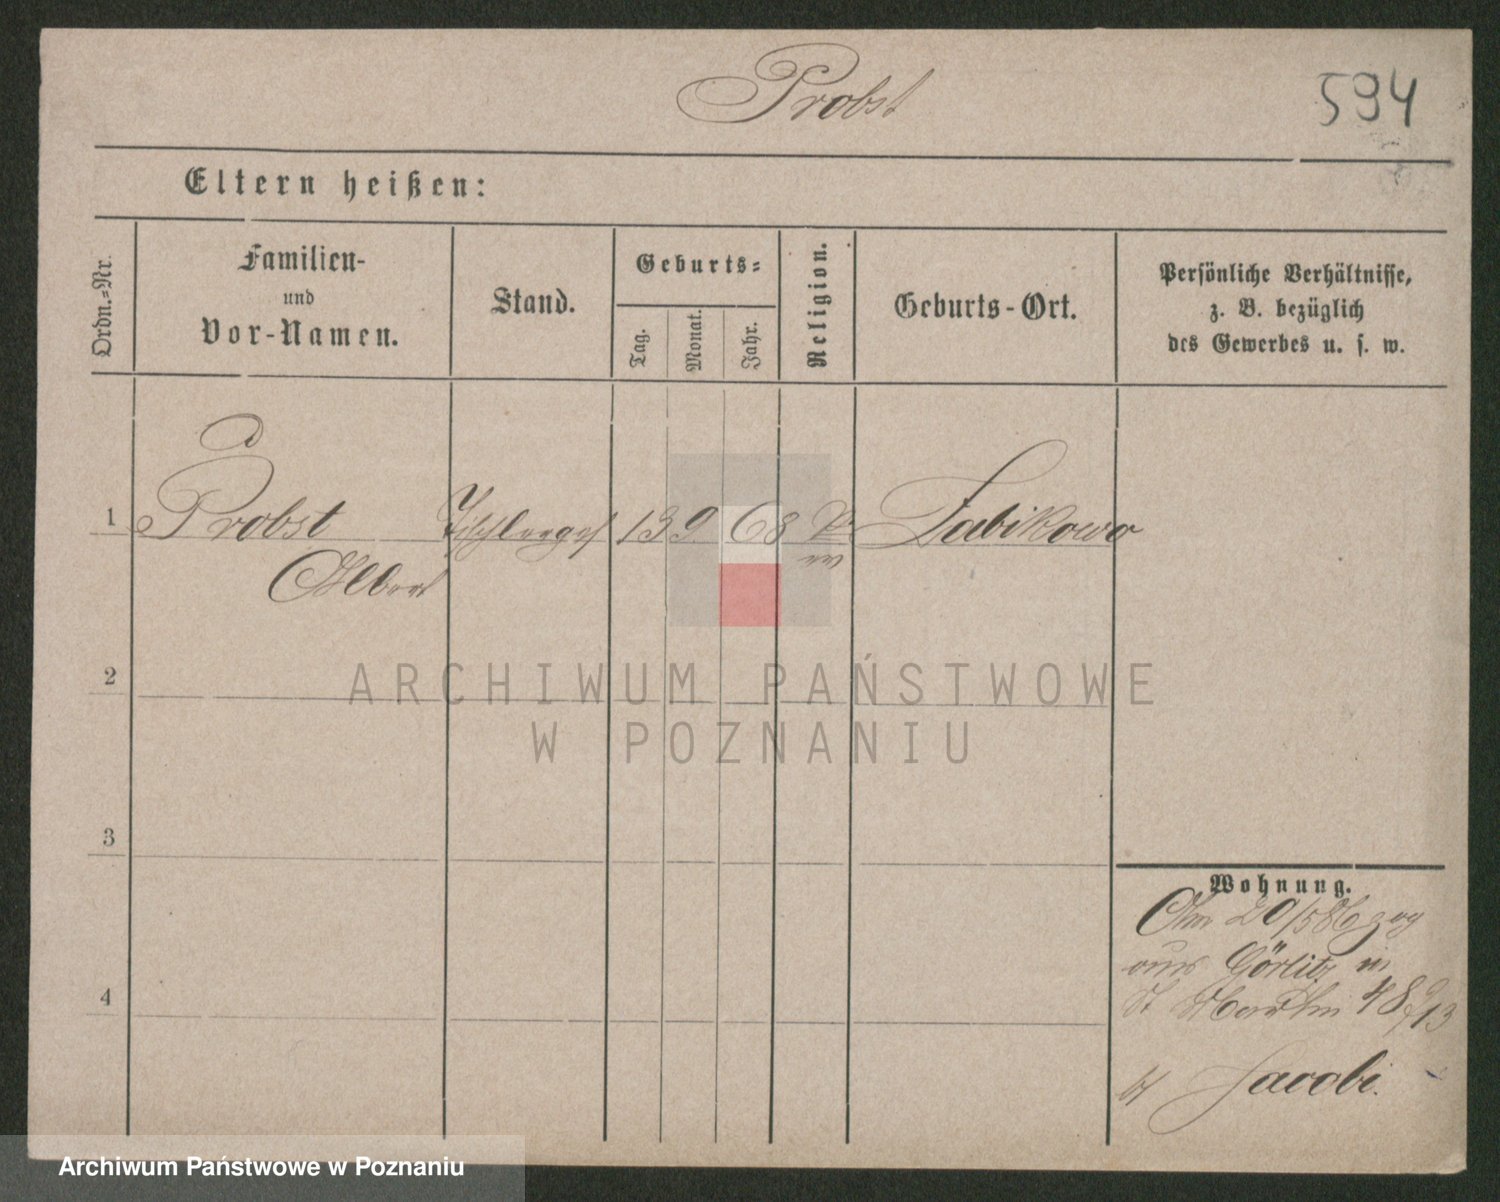 Probst
594
Eltern heißen:
Ordn.-Nr.
Familien-
und
Vor-Namen.
Stand.
Geburts-
Tag.
Monat.
Jahr.
Religion.
Geburts-Ort.
Persönliche Verhältnisse,
z. B. bezüglich
des Gewerbes u. s. w.
1
Probst
Albert
Tischlerges
13
9
68
Żabikowo
2
3
4
Wohnung.
Am 20/5 86 zog
aus Görlitz in
St Martin 48
b/ Jacobi.
ARCHIWUM PAŃSTWOWE
W POZNANIU
Archiwum Państwowe w Poznaniu